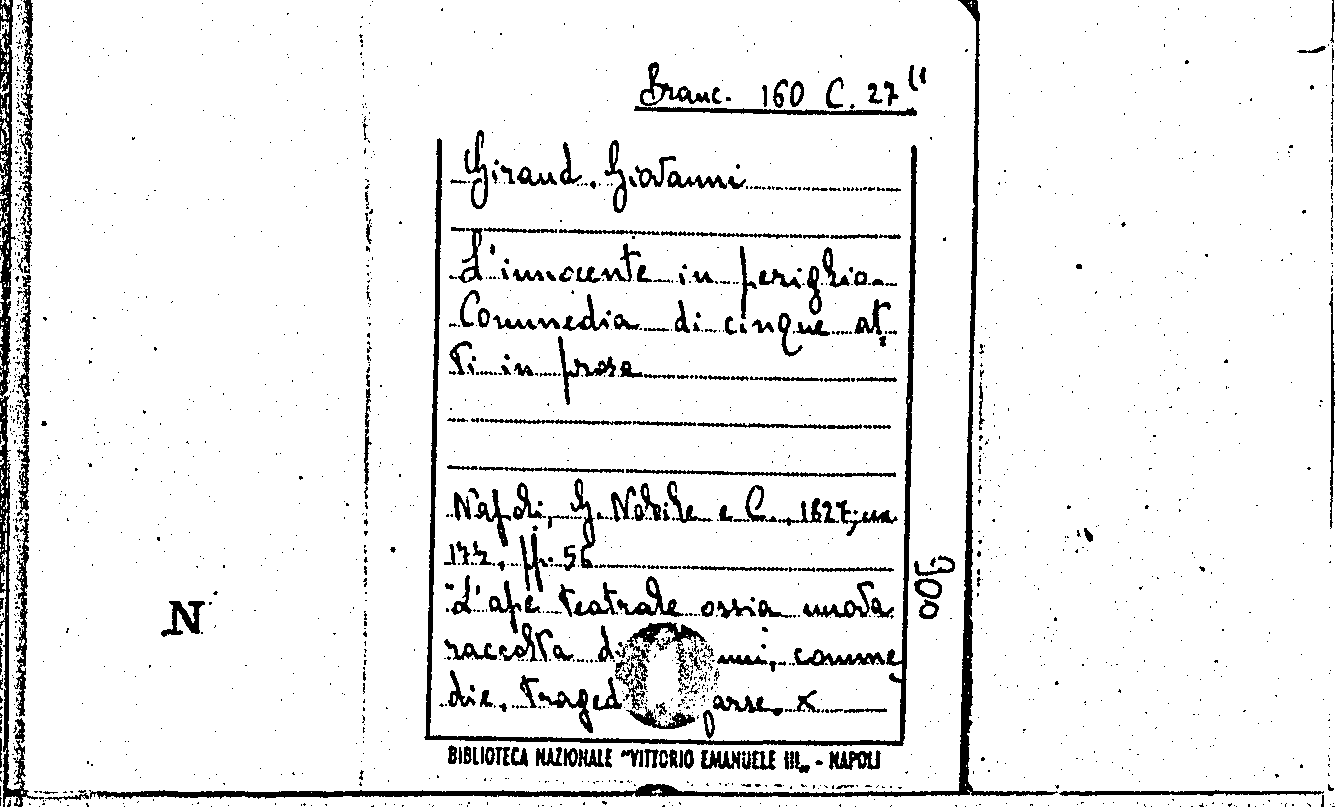 Branc. 160 C. 27
Giraud, Giovanni
L'innocente in periglio.
Commedia di cinque at,
ti in prosa
Napoli, G. Nobile e C., 1827, in
pp. 56
"L'ape teatrale ossia nuova
raccolta di comme
die, traged farse. x
900
N
BIBLIOTECA NAZIONALE "VITTORIO EMANUELE III„ - NAPOLI